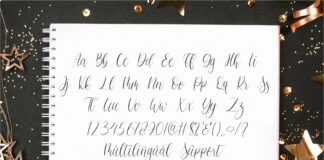 Aa Bb Cc Dd Ee Ff Gg Hh Ii
Jj Kk Ll Mm Nn Oo Pp Qq Rr Ss
Tt Uu Vv Ww Xx Yy Zz
Multilingual Support